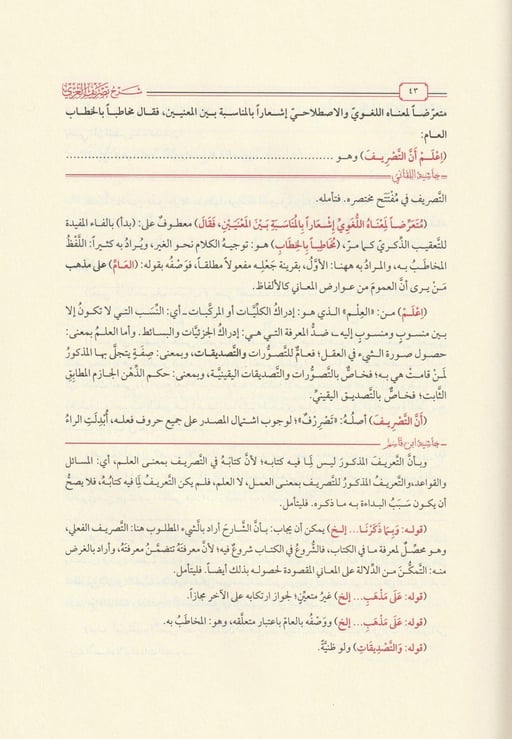 ٤٣
شرح تصريف العزي
متعرّضاً لمعناه اللغويّ والاصطلاحيّ إشعاراً بالمناسبة بين المعنيين، فقال مخاطباً بالخطاب
العام:
(اِعْلَمْ أَنَّ التَّصْرِيفَ) وهو
حاشية اللقاني
التَّصريف في مُفْتَتَح مختصره. فتأمله.
(مُتَعَرِّضاً لِمَعْنَاهُ اللُّغَوِيِّ إِشْعَاراً بِالْمُنَاسَبَةِ بَيْنَ الْمَعْنَيَيْنِ، فَقَالَ) معطوف على: (بدأ) بالفاء المفيدة
للتَّعقيب الذِّكريّ كما مرّ، (مُخَاطِباً بِالْخِطَابِ) هو: توجيهُ الكلام نحو الغير، ويُرادُ به كثيراً: اللَّفْظُ
المخاطَبُ به، والمراد به ههنا: الأوَّلُ، بقرينة جَعْلِه مفعولاً مطلقاً، فوَصْفُه بقوله: (العَامِّ) على مذهب
مَنْ يرى أنَّ العمومَ من عوارض المعاني كالألفاظ.
(اِعْلَمْ) من: «العِلْم» الذي هو: إدراكُ الكليَّات أو المركَّبات ـ أي: النِّسَب التي لا تكونُ إلا
بين منسوبٍ ومنسوبٍ إليه ـ ضدُّ المعرفة التي هي: إدراكُ الجزئيَّات والبسائط. وأما العلمُ بمعنى:
حصول صورة الشيء في العقل؛ فعامٌّ للتَّصوُّرات والتَّصديقات، وبمعنى: صِفَةٍ يتجلَّى بها المذكورُ
لمَنْ قامتْ هي به؛ فخاصٌّ بالتَّصوُّرات والتَّصديقات اليقينيَّة، وبمعنى: حكم الذِّهْن الجازم المطابِقِ
الثَّابت؛ فخاصٌّ بالتَّصديق اليقينيّ.
(أَنَّ التَّصْرِيفَ) أصلُه: «تَصْرِرْفٌ»؛ لوجوب اشتمال المصدر على جميع حروف فعله، أُبْدِلَتِ الراءُ
حاشية ابن قاسم
وبأنَّ التَّعريفَ المذكورَ ليس لِمَا فيه كتابه؛ لأنَّ كتابَهُ في التَّصريف بمعنى العلم، أي: المسائل
والقواعد، والتَّعريفُ المذكورُ للتَّصريف بمعنى العمل، لا العلم، فلم يكن التَّعريفُ لِمَا فيه كتابُهُ، فلا يصحُّ
أن يكون سَبَبُ البداءة به ما ذكره. فليتأمل.
(قوله: وَبِمَا ذَكَرْنَا... إلخ) يمكن أن يجاب: بأنَّ الشَّارحَ أراد بالشَّيء المطلوب هنا: التَّصريفَ الفعلي،
وهو محصِّلٌ لمعرفة ما في الكتاب، فالشُّروعُ في الكتاب شروعٌ فيه؛ لأنَّ معرفتَهُ تتضمَّنُ معرفتَهُ، وأراد بالغَرَض
منه: التَّمكُّنَ من الدِّلالة على المعاني المقصودة لحصوله بذلك أيضاً. فليتأمل.
(قوله: عَلَى مَذْهَبِ... إلخ) غيرُ متعيِّنٍ؛ لجواز ارتكابه على الآخر مجازاً.
(قوله: عَلَى مَذْهَبِ... إلخ) ووَصْفُه بالعامّ باعتبار متعلَّقه، وهو: المخاطَبُ به.
(قوله: وَالتَّصْدِيقَاتِ) ولو ظنيَّةً.